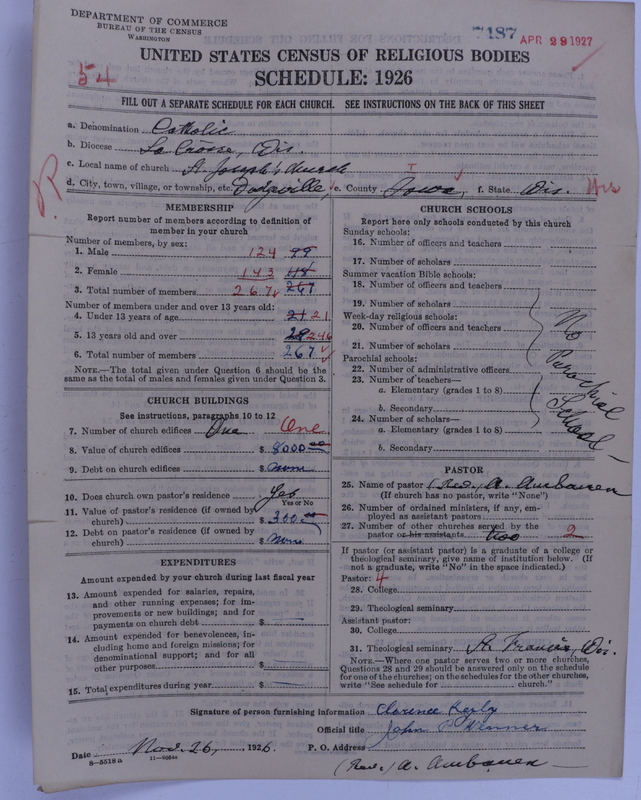 DEPARTMENT OF COMMERCE
BUREAU OF THE CENSUS
WASHINGTON
7187
APR 29 1927
UNITED STATES CENSUS OF RELIGIOUS BODIES
54
SCHEDULE: 1926
FILL OUT A SEPARATE SCHEDULE FOR EACH CHURCH. SEE INSTRUCTIONS ON THE BACK OF THIS SHEET
a. Denomination Catholic
b. Diocese La Crosse, Wis.
c. Local name of church St. Joseph's Church
d. City, town, village, or township, etc. Dodgeville, e. County Iowa, f. State Wis.
MEMBERSHIP
Report number of members according to definition of
member in your church
Number of members, by sex:
1. Male 124 99
2. Female 143 118
3. Total number of members 267 267
Number of members under and over 13 years old:
4. Under 13 years of age 21 21
5. 13 years old and over 246
6. Total number of members 267
NOTE.—The total given under Question 6 should be the
same as the total of males and females given under Question 3.
CHURCH BUILDINGS
See instructions, paragraphs 10 to 12
7. Number of church edifices One One
8. Value of church edifices $ 8000 00
9. Debt on church edifices $ none
10. Does church own pastor's residence Yes
Yes or No
11. Value of pastor's residence (if owned by
church) $ 300
12. Debt on pastor's residence (if owned by
church) $ none
EXPENDITURES
Amount expended by your church during last fiscal year
13. Amount expended for salaries, repairs,
and other running expenses; for im-
provements or new buildings; and for
payments on church debt $
14. Amount expended for benevolences, in-
cluding home and foreign missions; for
denominational support; and for all
other purposes
15. Total expenditures during year $
CHURCH SCHOOLS
Report here only schools conducted by this church
Sunday schools:
16. Number of officers and teachers
17. Number of scholars
Summer vacation Bible schools:
18. Number of officers and teachers
19. Number of scholars
Week-day religious schools:
20. Number of officers and teachers
21. Number of scholars
Parochial schools:
22. Number of administrative officers
23. Number of teachers—
a. Elementary (grades 1 to 8)
b. Secondary
24. Number of scholars—
a. Elementary (grades 1 to 8)
b. Secondary
No Parochial School
PASTOR
25. Name of pastor (Rev.) A.
(If church has no pastor, write "None")
26. Number of ordained ministers, if any, em-
ployed as assistant pastors
27. Number of other churches served by the
pastor or his assistants two 2
If pastor (or assistant pastor) is a graduate of a college or
theological seminary, give name of institution below. (If
not a graduate, write "No" in the space indicated.)
Pastor: 4
28. College
29. Theological seminary
Assistant pastor:
30. College
31. Theological seminary St. Francis, Wis.
NOTE.—Where one pastor serves two or more churches,
Questions 28 and 29 should be answered only on the schedule
for one of the churches; on the schedules for the other churches,
write "See schedule for church."
Signature of person furnishing information Clarence
Official title John
Date Nov. 26, 1926. P. O. Address
8—5518a
(Rev.) A.